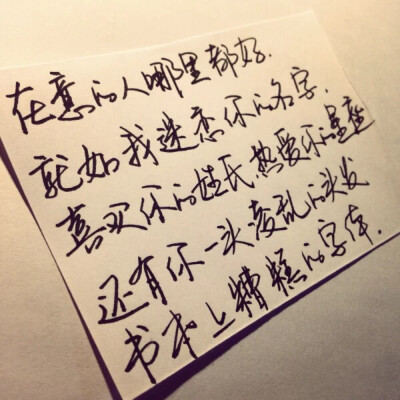 在意的人哪里都好.
就如我迷恋你的名字.
喜买你的姓氏.热爱你的星座
还有你一头凌乱的头发
书本上糟糕的字体.